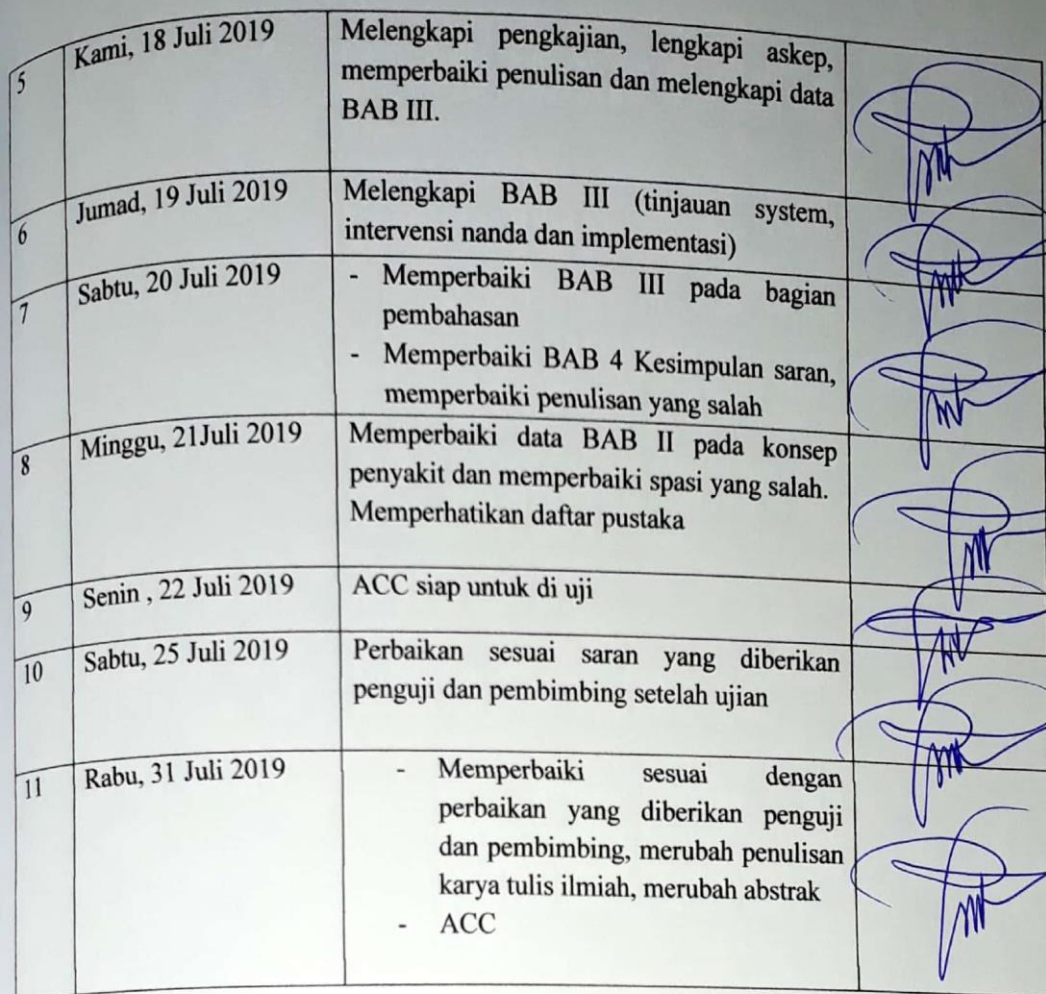 5 Kami, 18 Juli 2019 Melengkapi pengkajian, lengkapi askep,
memperbaiki penulisan dan melengkapi data
BAB III.
6 Jumad, 19 Juli 2019 Melengkapi BAB III (tinjauan system,
intervensi nanda dan implementasi)
7 Sabtu, 20 Juli 2019 - Memperbaiki BAB III pada bagian
pembahasan
- Memperbaiki BAB 4 Kesimpulan saran,
memperbaiki penulisan yang salah
8 Minggu, 21Juli 2019 Memperbaiki data BAB II pada konsep
penyakit dan memperbaiki spasi yang salah.
Memperhatikan daftar pustaka
9 Senin , 22 Juli 2019 ACC siap untuk di uji
10 Sabtu, 25 Juli 2019 Perbaikan sesuai saran yang diberikan
penguji dan pembimbing setelah ujian
11 Rabu, 31 Juli 2019 - Memperbaiki sesuai dengan
perbaikan yang diberikan penguji
dan pembimbing, merubah penulisan
karya tulis ilmiah, merubah abstrak
- ACC